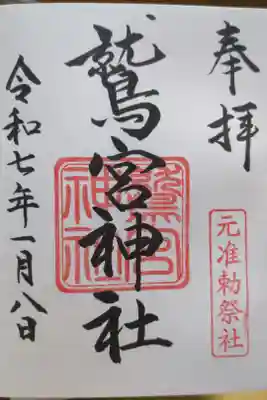 奉拝
元准勅祭社
鷲宮神社
鷲宮神社
令和七年一月八日